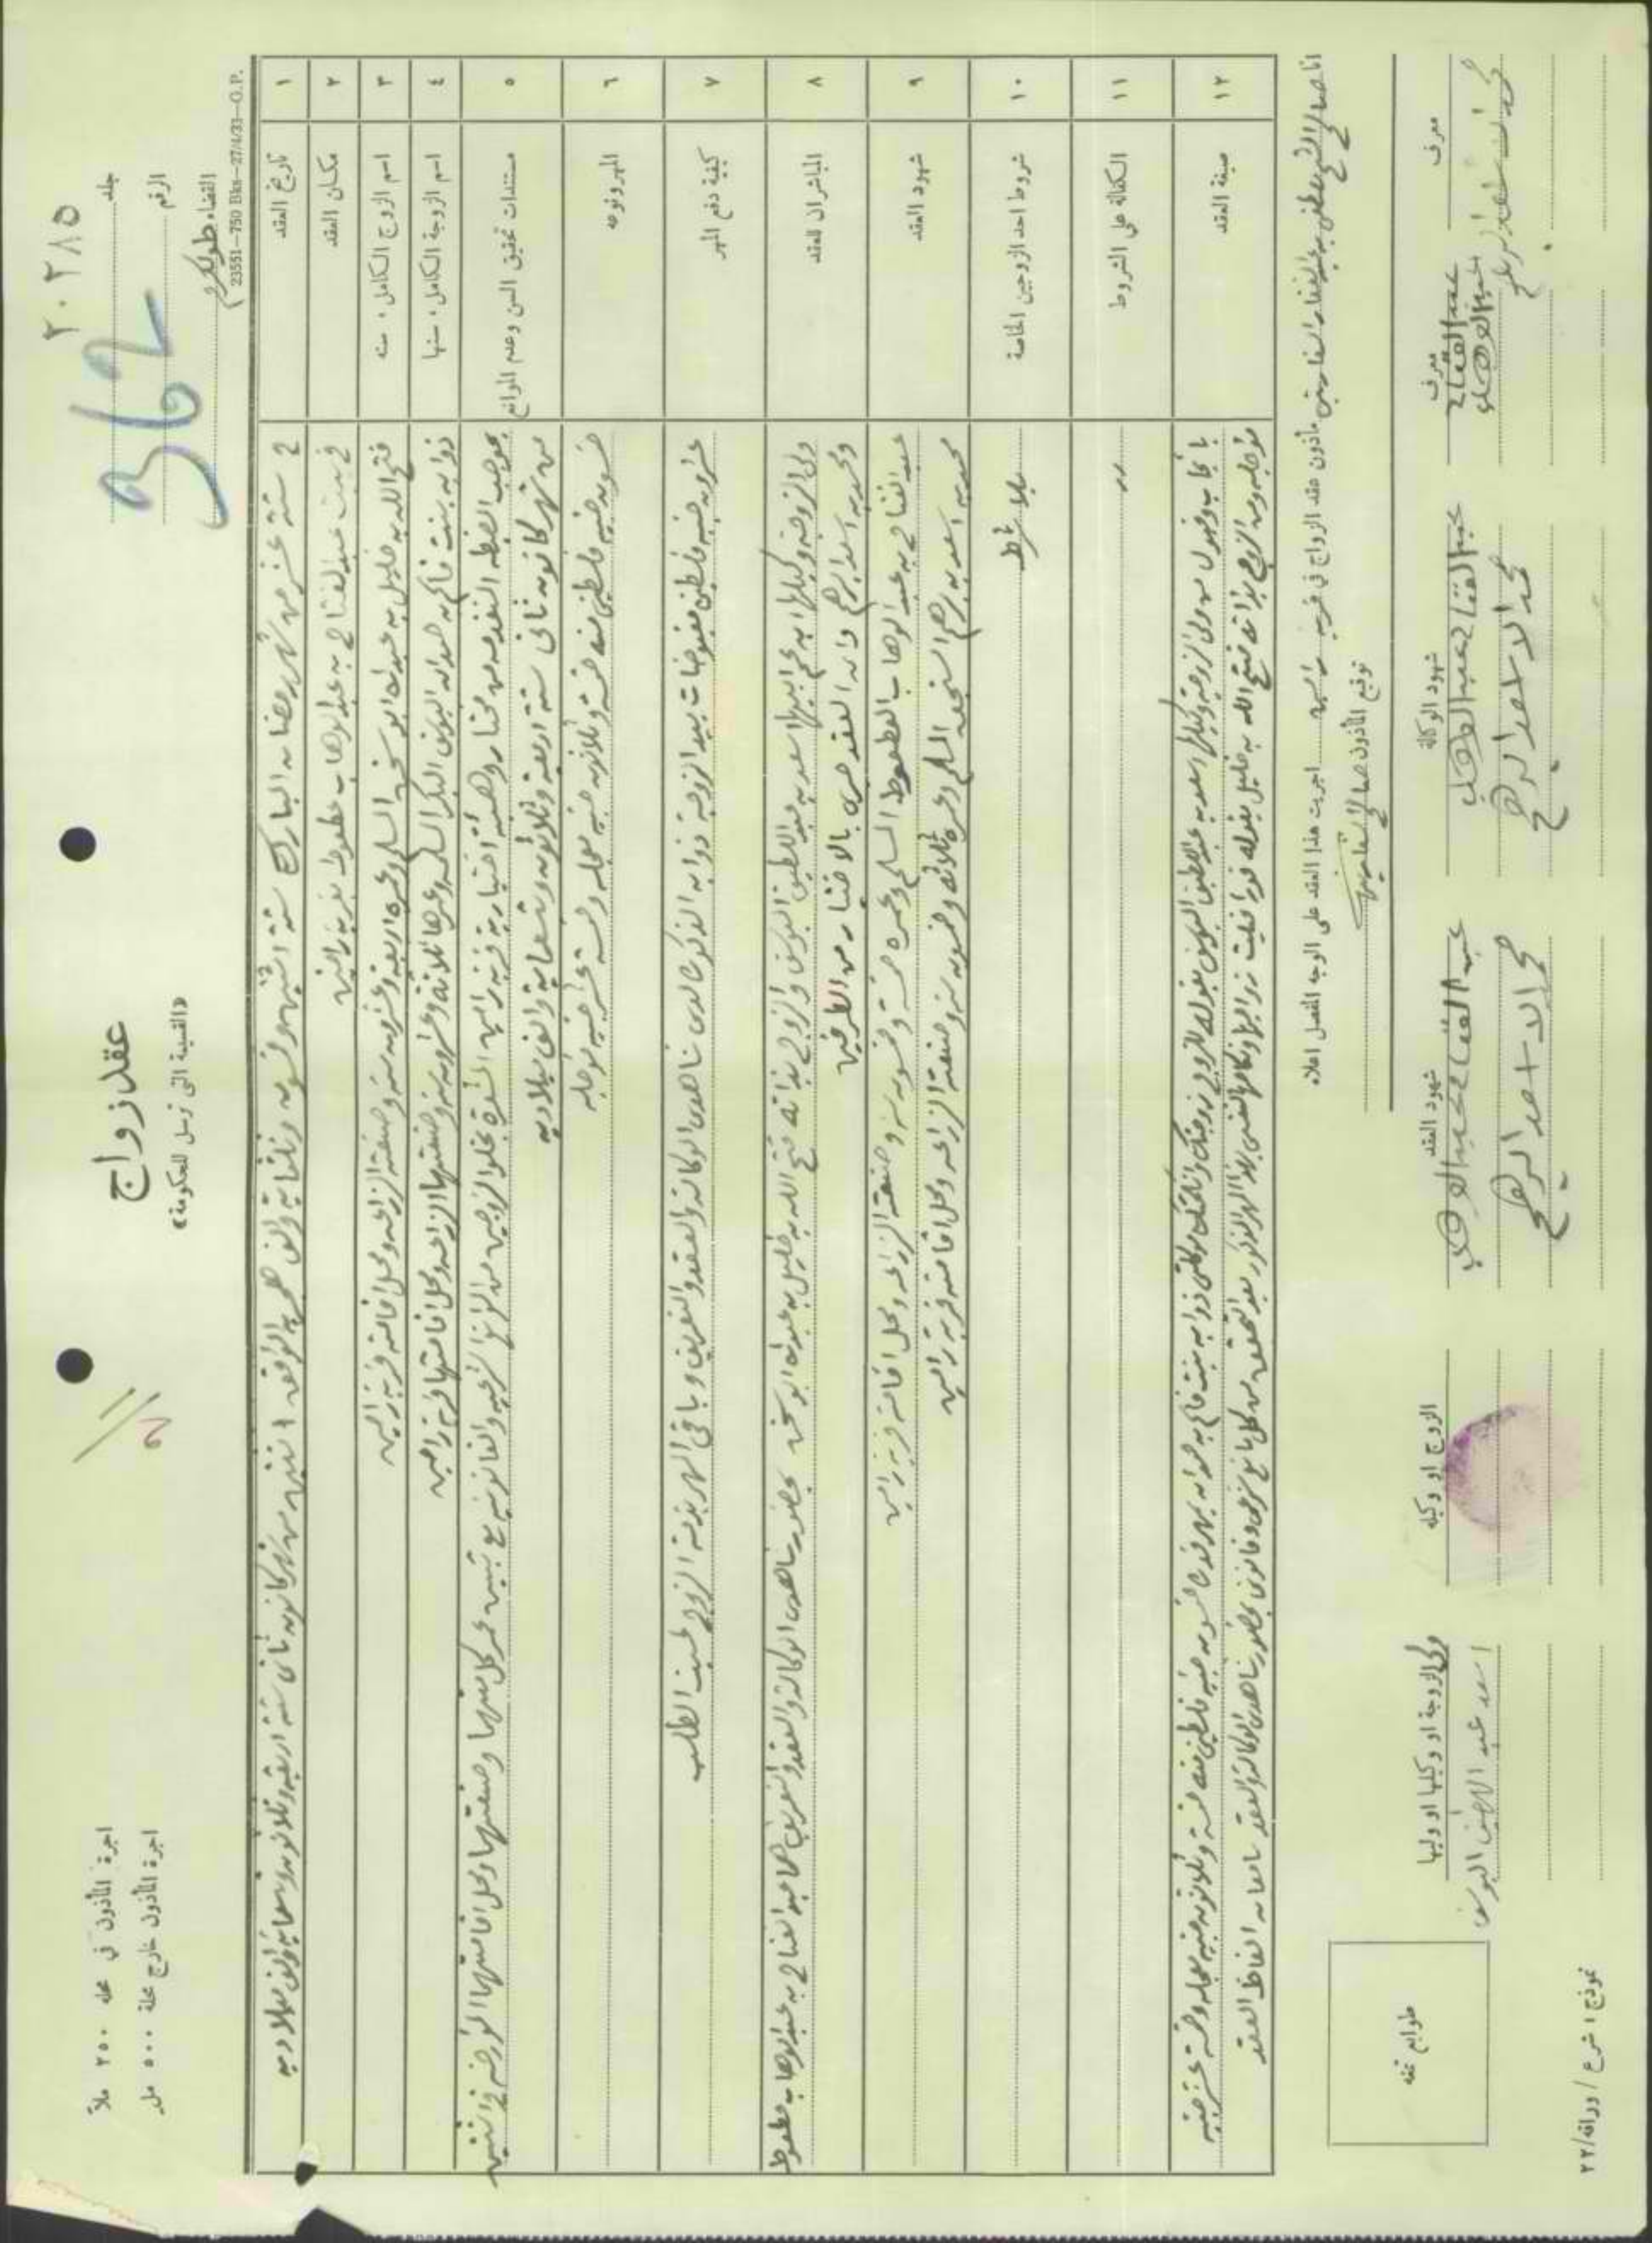 ٢٠٢٨٥
جلد
362
الرقم
القضاء طولكرم
23551—750 Bks—27/4/33—G.P.
عقد زواج
«القسيمة التي ترسل للحكومة»
اجرة المأذون في محله ٢٥٠ ملاً
اجرة المأذون خارج محله ٥٠٠ مل
١ تاريخ العقد في ستة عشر من شهر رمضان المبارك سنة اثنتين وخمسون وثلثماية والف هجريه الموافق اثنتين من شهر كانون ثاني سنة اربعة وثلاثون وتسعماية والف ميلاديه
٢ مكان العقد في بيت عبد الفتاح بن عبد الوهاب حطوط بقرية رامين
٣ اسم الزوج الكامل . سنه فتح الله بن خليل بن عبد الله ابو المسلم وعمره اربعة وعشرون سنه وصنعته الزراعه ومحل اقامته قرية رامين
٤ اسم الزوجة الكامل . سنها بنت قاسم حمدان البكر المسلمه وعمرها ثلاثة وعشرون سنه وصنعتها الزراعه ومحل اقامتها قرية رامين
٥ مستندات تحقيق السن وعدم الموانع بموجب الضبطه المتقدمه من مختار وهيئة اختيارية قرية رامين المشعره بخلو الزوجين من الموانع الشرعيه والقانونيه مع تبيين عمر كل منهما وصنعتهما ومحل اقامتهما المؤرخه في اثنتين
من شهر كانون ثاني سنة اربعة وثلاثون وتسعماية والف ميلاديه
٦ المهر ونوعه خمسون جنيه فلسطيني منه خمسة وثلاثون جنيه معجله وخمسة عشر جنيه مؤجله
٧ كيفية دفع المهر عشرون جنيه فلسطيني مقبوضات بيد الزوجة المذكوره لدى شاهدي الوكاله والعقد والتعريف وباقي المهر بذمة الزوج لحين الطلب
٨ المباشران للعقد ولي الزوجة ووكيلها ابن عم ابيها اسعد بن عبد اللطيف والزوج بذاته فتح الله بن خليل بن عبد الله ابو بحضور شاهدي الوكاله والعقد والتعريف هما عبد الفتاح بن عبد الوهاب حطوط
ومحمد بن اسعد ابرهيم وان العقد جرى بالاختيار من الطرفين
٩ شهود العقد عبد الفتاح بن عبد الوهاب المسلم وعمره خمسة وخمسون سنه وصنعته الزراعه ومحل اقامته قرية رامين
محمد بن اسعد بن ابرهيم المسلم وعمره ثلاثة وخمسون سنه وصنعته الزراعه ومحل اقامته قرية رامين
١٠ شروط احد الزوجين الخاصة بلا شرط
١١ الكفالة على الشروط
١٢ صيغة العقد بايجاب وقبول من ولي الزوجة ووكيلها اسعد بن عبد اللطيف بقوله للزوج زوجتك وانكحتك موكلتي بنت قاسم بن حمدان بمهر قدره خمسون جنيه فلسطيني منه خمسة وثلاثون جنيه معجله وخمسة عشر جنيه
مؤجله ومن الزوج بذاته فتح الله بن خليل بقوله فورا قبلت زواجها ونكاحها لنفسي بهذا المهر المذكور بعد التحقق من كل مانع شرعي وقانوني بحضور شاهدي الوكاله والعقد سامعان الفاظ العقد
انا صالح الشيخ مصطفى بن عبد الغفار مأذون عقد الزواج في قرية رامين اجريت هذا العقد على الوجه المفصل اعلاه
توقيع المأذون صالح
ولي الزوجة او وكيلها او وليها
اسعد عبد اللطيف
الزوج او وكيله
شهود العقد
عبد الفتاح عبد الوهاب
محمد الاسعد ابرهيم
شهود الوكالة
عبد الفتاح عبد الوهاب
محمد الاسعد ابرهيم
معرف
عبد الفتاح
عبد الوهاب
معرف
محمد اسعد ابرهيم
طوابع تمغه
نموذج ١ شرع / ورقة/٢٢